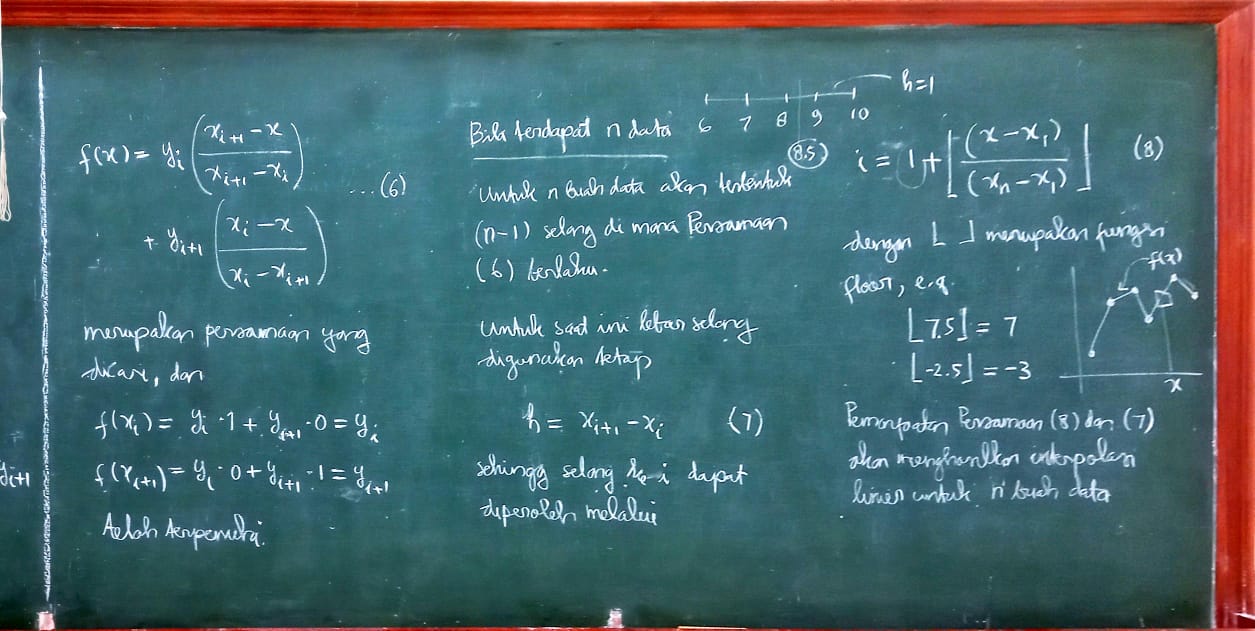 f(x) = y_i ( (x_{i+1} - x) / (x_{i+1} - x_i) ) ...(6)
+ y_{i+1} ( (x_i - x) / (x_i - x_{i+1}) )
merupakan persamaan yang
dicari, dan
f(x_i) = y_i · 1 + y_{i+1} · 0 = y_i
f(x_{i+1}) = y_i · 0 + y_{i+1} · 1 = y_{i+1}
telah terpenuhi.
y_{i+1}
Bila terdapat n data
untuk n buah data akan terbentuk
(n-1) selang di mana Persamaan
(6) berlaku.
untuk saat ini lebar selang
digunakan tetap
h = x_{i+1} - x_i (7)
sehingg selang ke i dapat
diperoleh melalui
h=1
6 7 8 9 10
8.5
i = 1 + ⌊ (x - x_1) / (x_n - x_1) ⌋ (8)
dengan ⌊ ⌋ merupakan fungsi
floor, e.g.
⌊7.5⌋ = 7
⌊-2.5⌋ = -3
f(x)
x
Pemanfaatan Persamaan (8) dan (7)
akan menghasilkan interpolasi
linier untuk n buah data